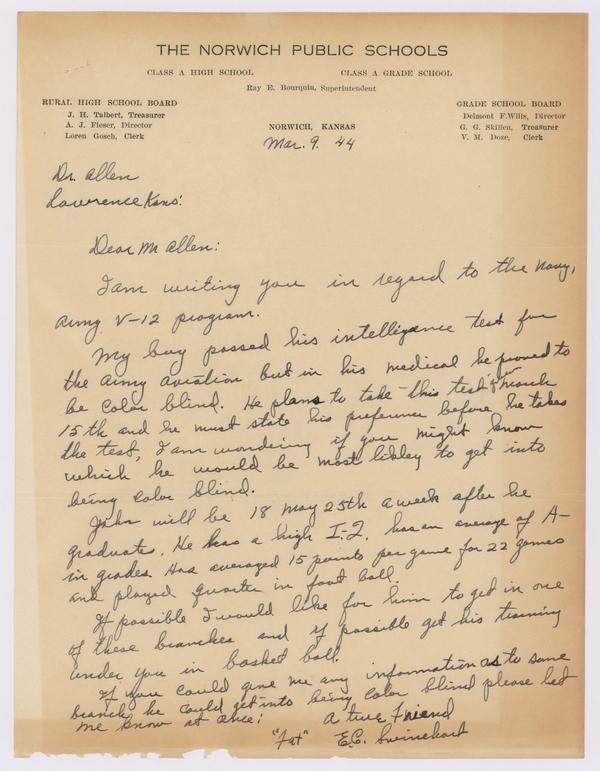 THE NORWICH PUBLIC SCHOOLS
CLASS A HIGH SCHOOL CLASS A GRADE SCHOOL
Ray E. Bourquin, Superintendent
RURAL HIGH SCHOOL BOARD
J. H. Talbert, Treasurer
A. J. Fieser, Director
Loren Gosch, Clerk
GRADE SCHOOL BOARD
Delmont F. Wills, Director
G. G. Skillen, Treasurer
V. M. Doze, Clerk
NORWICH, KANSAS
Mar. 9. 44
Dr. Allen
Lawrence Kans:
Dear Mr Allen:
I am writing you in regard to the Navy,
Army V-12 program.
My boy passed his intelligence test for
the Army aviation but in his medical he proved to
be color blind. He plans to take this test after March
15th and he must state his preference before he takes
the test, I am wondering if you might know
which he would be most likley to get into
being color blind.
John will be 18 May 25th a week after he
graduates. He has a high I-Q. has an average of A-
in grades. Has averaged 15 points per game for 22 games
and played quarter in foot ball.
If possible I would like for him to get in one
of these branches and if possible get his training
under you in basket ball.
If you could give me any information as to some
branch he could get into being color blind please let
me know at once:
A true Friend
"Fat" E.C. Swinehart